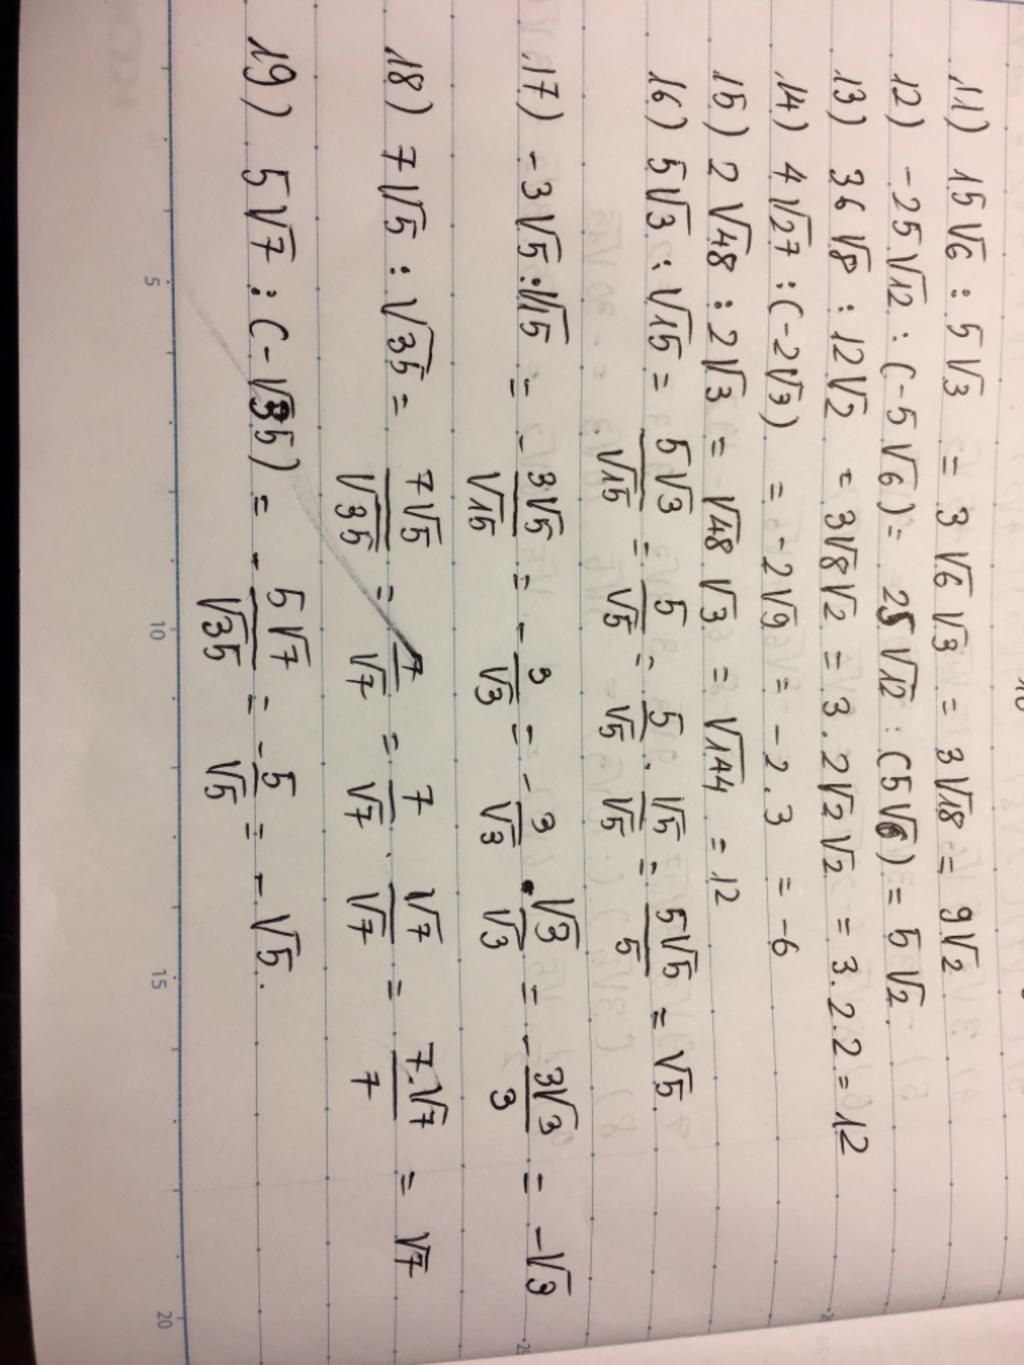 11) 15√6 : 5√3 = 3√6 √3 = 3√18 = 9√2
12) -25√12 : (-5√6) = 25√12 : (5√6) = 5√2.
13) 36√8 : 12√2 = 3√8√2 = 3.2√2√2 = 3.2.2 = 12
14) 4√27 : (-2√3) = -2√9 = -2.3 = -6
15) 2√48 : 2√3 = √48 √3 = √144 = 12
16) 5√3 : √15 = 5√3/√15 = 5/√5 = 5/√5 . √5/√5 = 5√5/5 = √5
17) -3√5 : √15 = - 3√5/√15 = - 3/√3 = - 3/√3 . √3/√3 = - 3√3/3 = -√3
18) 7√5 : √35 = 7√5/√35 = 7/√7 = 7/√7 . √7/√7 = 7.√7/7 = √7
19) 5√7 : (-√35) = - 5√7/√35 = - 5/√5 = -√5.
5 10 15 20